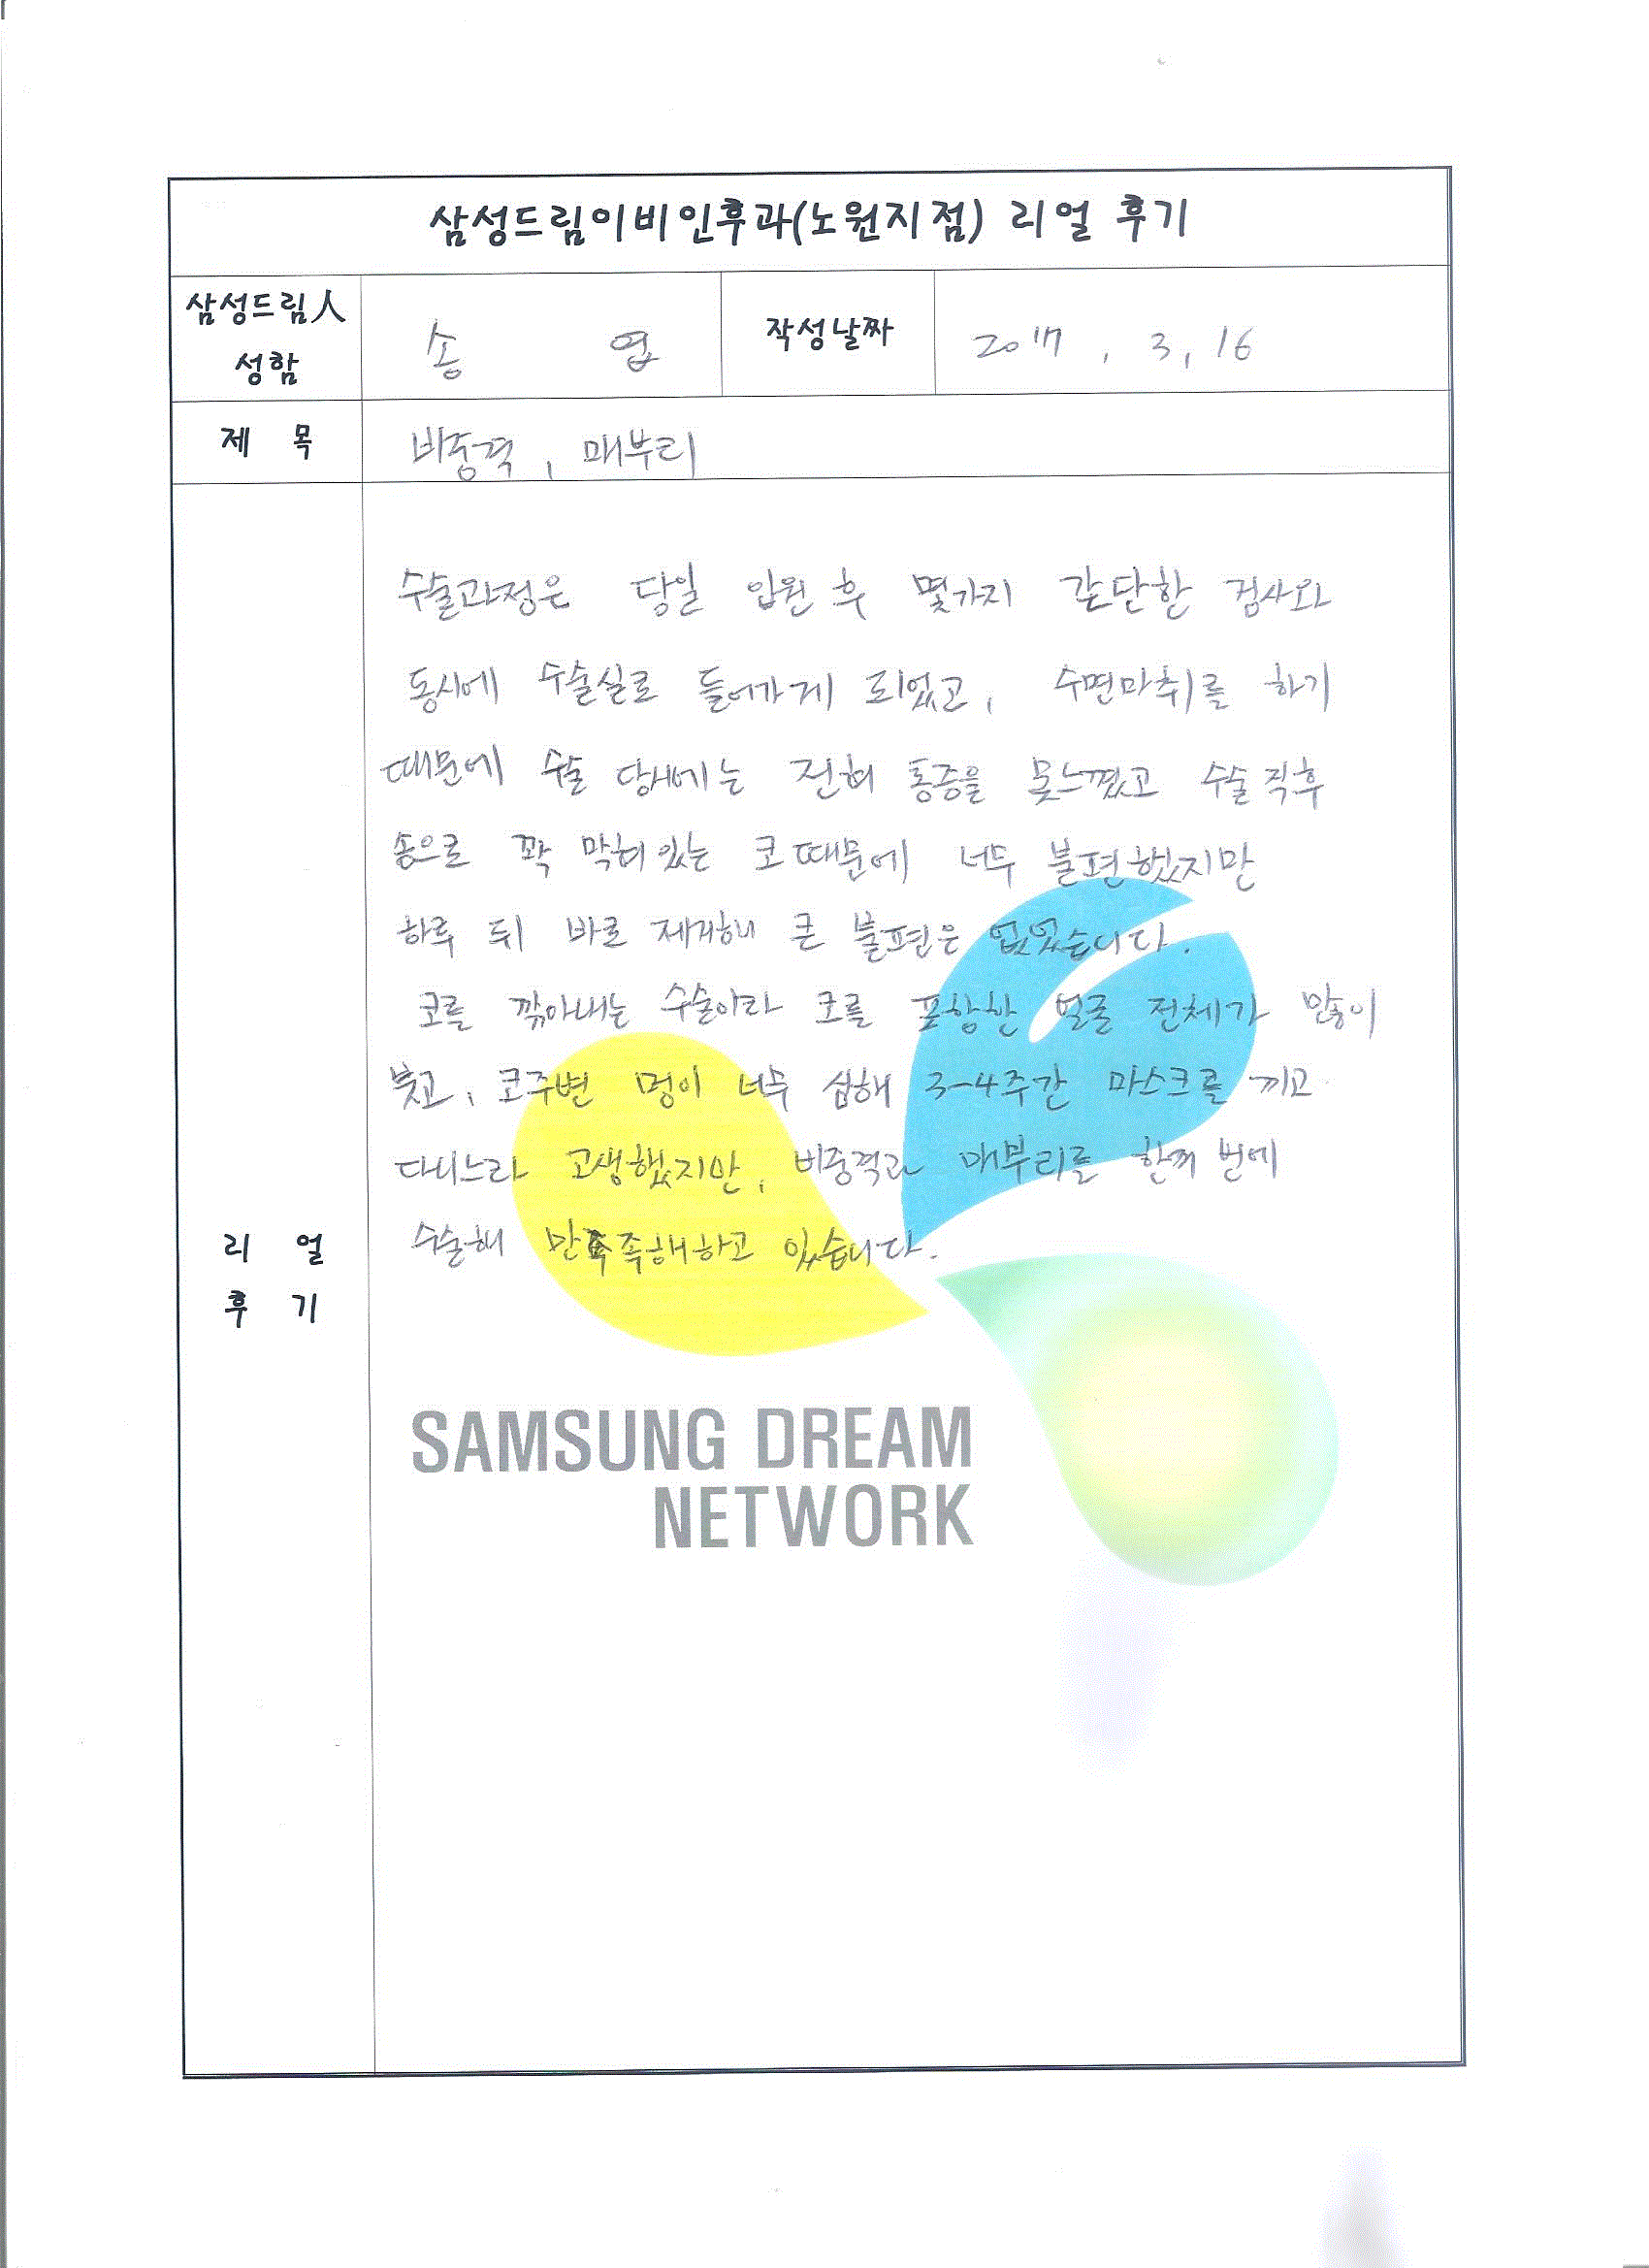 삼성드림이비인후과(노원지점) 리얼 후기
삼성드림人
성함
송 엽
작성날짜
2017, 3, 16
제 목
비중격, 매부리
수술과정은 당일 입원 후 몇가지 간단한 검사와
동시에 수술실로 들어가게 되었고, 수면마취를 하기
때문에 수술 당시에는 전혀 통증을 못느꼈고 수술직후
솜으로 꽉 막혀있는 코때문에 너무 불편했지만
하루 뒤 바로 제거해 큰 불편은 없었습니다.
코를 깎아내는 수술이라 코를 포함한 얼굴 전체가 많이
붓고, 코주변 멍이 너무 심해 3-4주간 마스크를 끼고
다니느라 고생했지만, 비중격과 매부리를 한꺼번에
수술해 만족해하고 있습니다.
리 얼
후 기
SAMSUNG DREAM
NETWORK